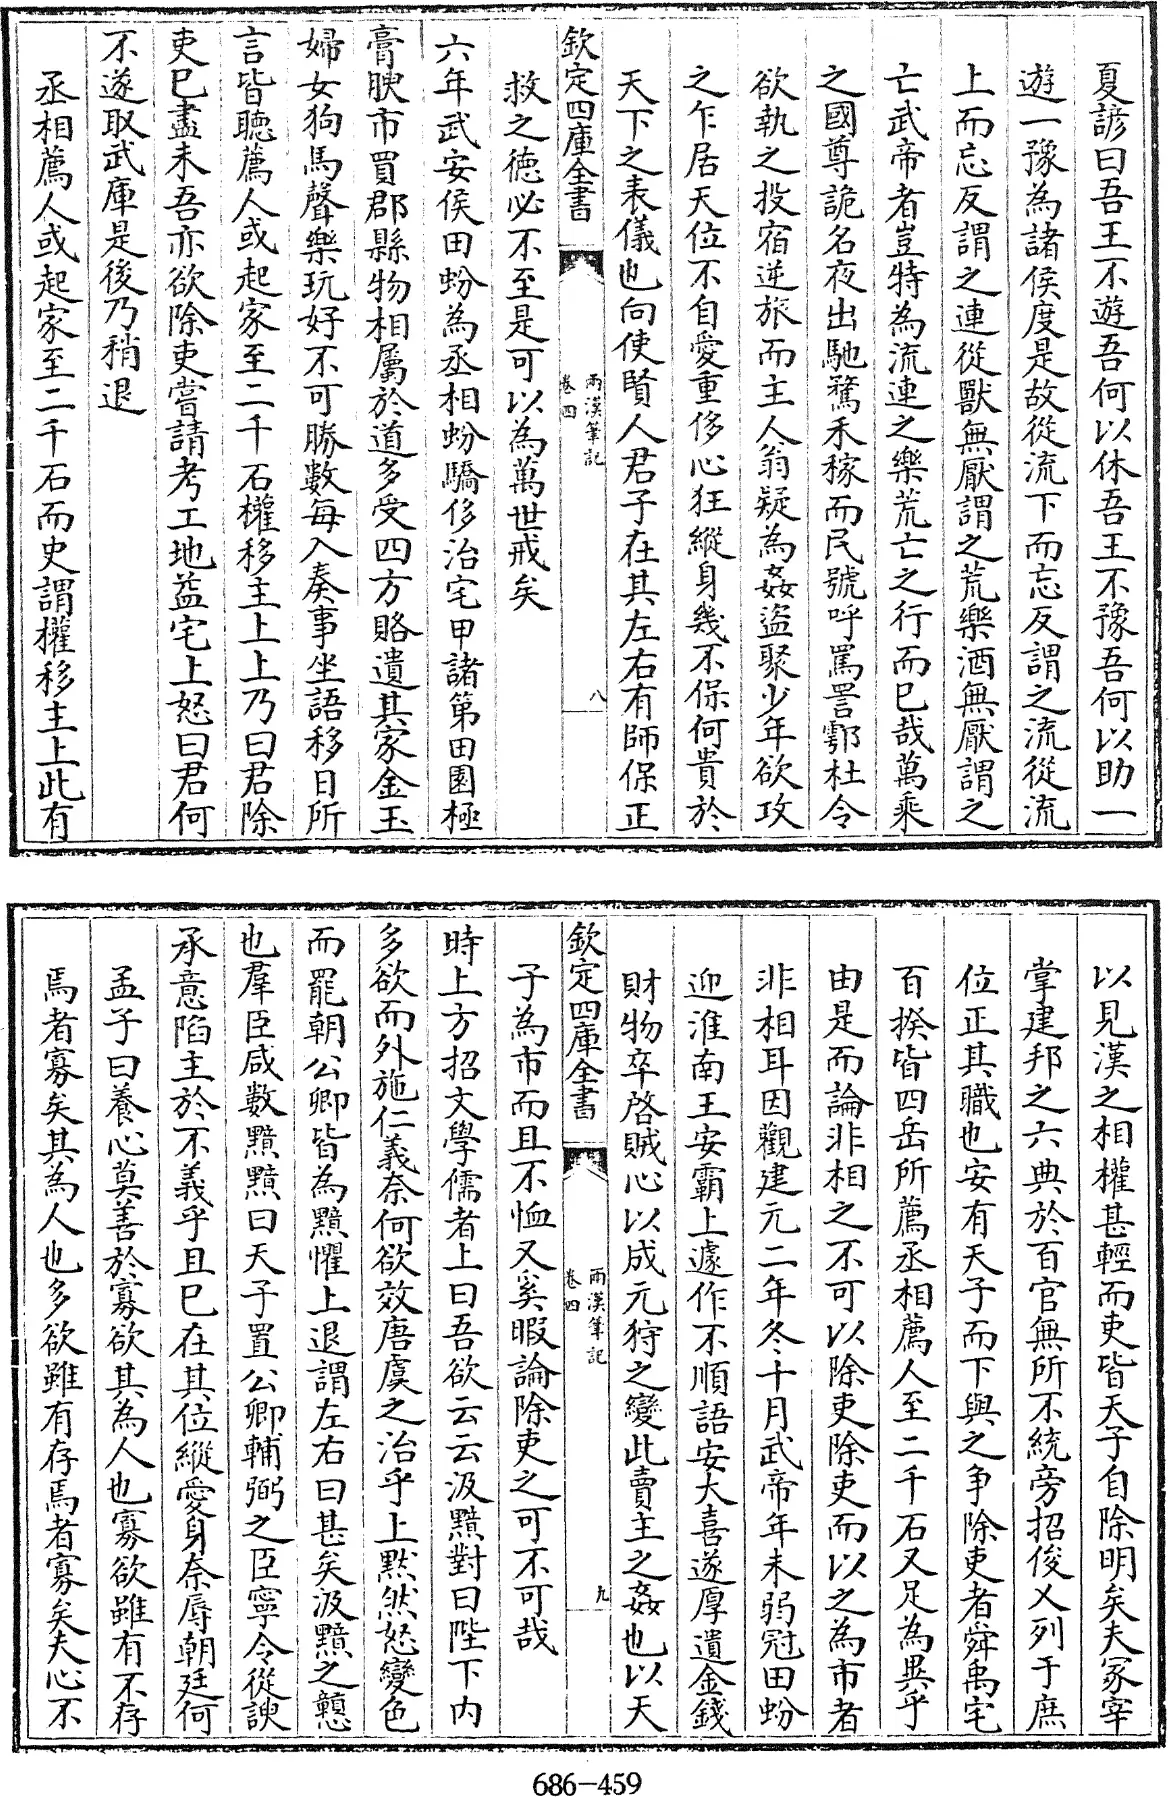 夏諺曰吾王不遊吾何以休吾王不豫吾何以助一
遊一豫為諸侯度是故從流下而忘反謂之流從流
上而忘反謂之連從獸無厭謂之荒樂酒無厭謂之
亡武帝者豈特為流連之樂荒亡之行而已哉萬乘
之國尊詭名夜出馳騖禾稼而民號呼罵詈鄠杜令
欲執之投宿逆旅而主人翁疑為姦盜聚少年欲攻
之乍居天位不自愛重侈心狂縱身幾不保何貴於
天下之表儀也向使賢人君子在其左右有師保正
欽定四庫全書
兩漢筆記
卷四
八
救之徳必不至是可以為萬世戒矣
六年武安侯田蚡為丞相蚡驕侈治宅甲諸第田園極
膏腴市買郡縣物相屬於道多受四方賂遺其家金玉
婦女狗馬聲樂玩好不可勝數每入奏事坐語移日所
言皆聽薦人或起家至二千石權移主上上乃曰君除
吏已盡未吾亦欲除吏嘗請考工地益宅上怒曰君何
不遂取武庫是後乃稍退
丞相薦人或起家至二千石而史謂權移主上此有
以見漢之相權甚輕而吏皆天子自除明矣夫冢宰
掌建邦之六典於百官無所不統旁招俊乂列于庶
位正其職也安有天子而下與之争除吏者舜禹宅
百揆皆四岳所薦丞相薦人至二千石又足為異乎
由是而論非相之不可以除吏除吏而以之為市者
非相耳因觀建元二年冬十月武帝年未弱冠田蚡
迎淮南王安霸上遽作不順語安大喜遂厚遺金錢
財物卒啓賊心以成元狩之變此賣主之姦也以天
欽定四庫全書
兩漢筆記
卷四
九
子為市而且不恤又奚暇論除吏之可不可哉
時上方招文學儒者上曰吾欲云云汲黯對曰陛下内
多欲而外施仁義奈何欲效唐虞之治乎上黙然怒變色
而罷朝公卿皆為黯懼上退謂左右曰甚矣汲黯之戇
也羣臣咸數黯黯曰天子置公卿輔弼之臣寧令從諛
承意陷主於不義乎且已在其位縱愛身奈辱朝廷何
孟子曰養心莫善於寡欲其為人也寡欲雖有不存
焉者寡矣其為人也多欲雖有存焉者寡矣夫心不
686-459